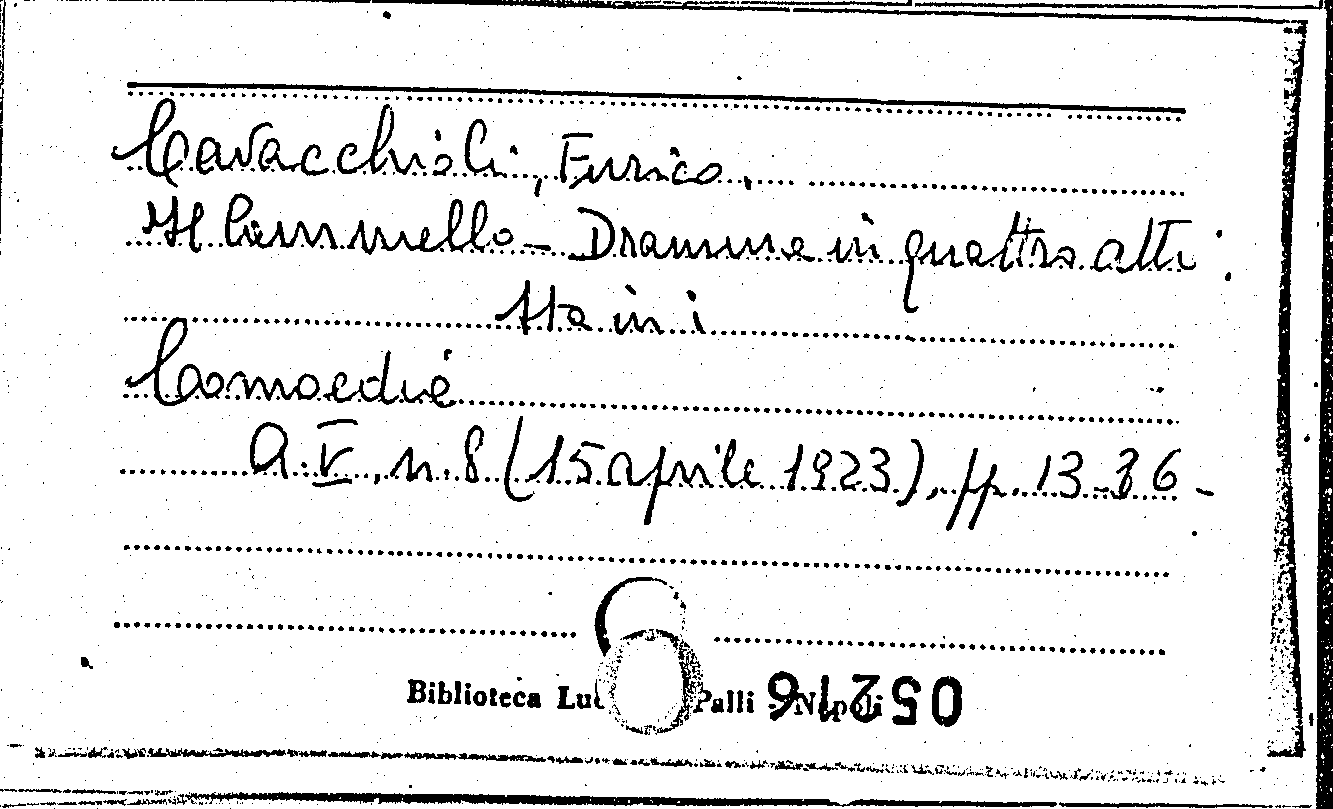 Cavacchioli, Enrico.
Il Cammello - Dramma in quattro atti.
Sta in:
Comoedia
A. V, n. 8 (15 aprile 1923), pp. 13-36 -
Biblioteca Palli Napoli